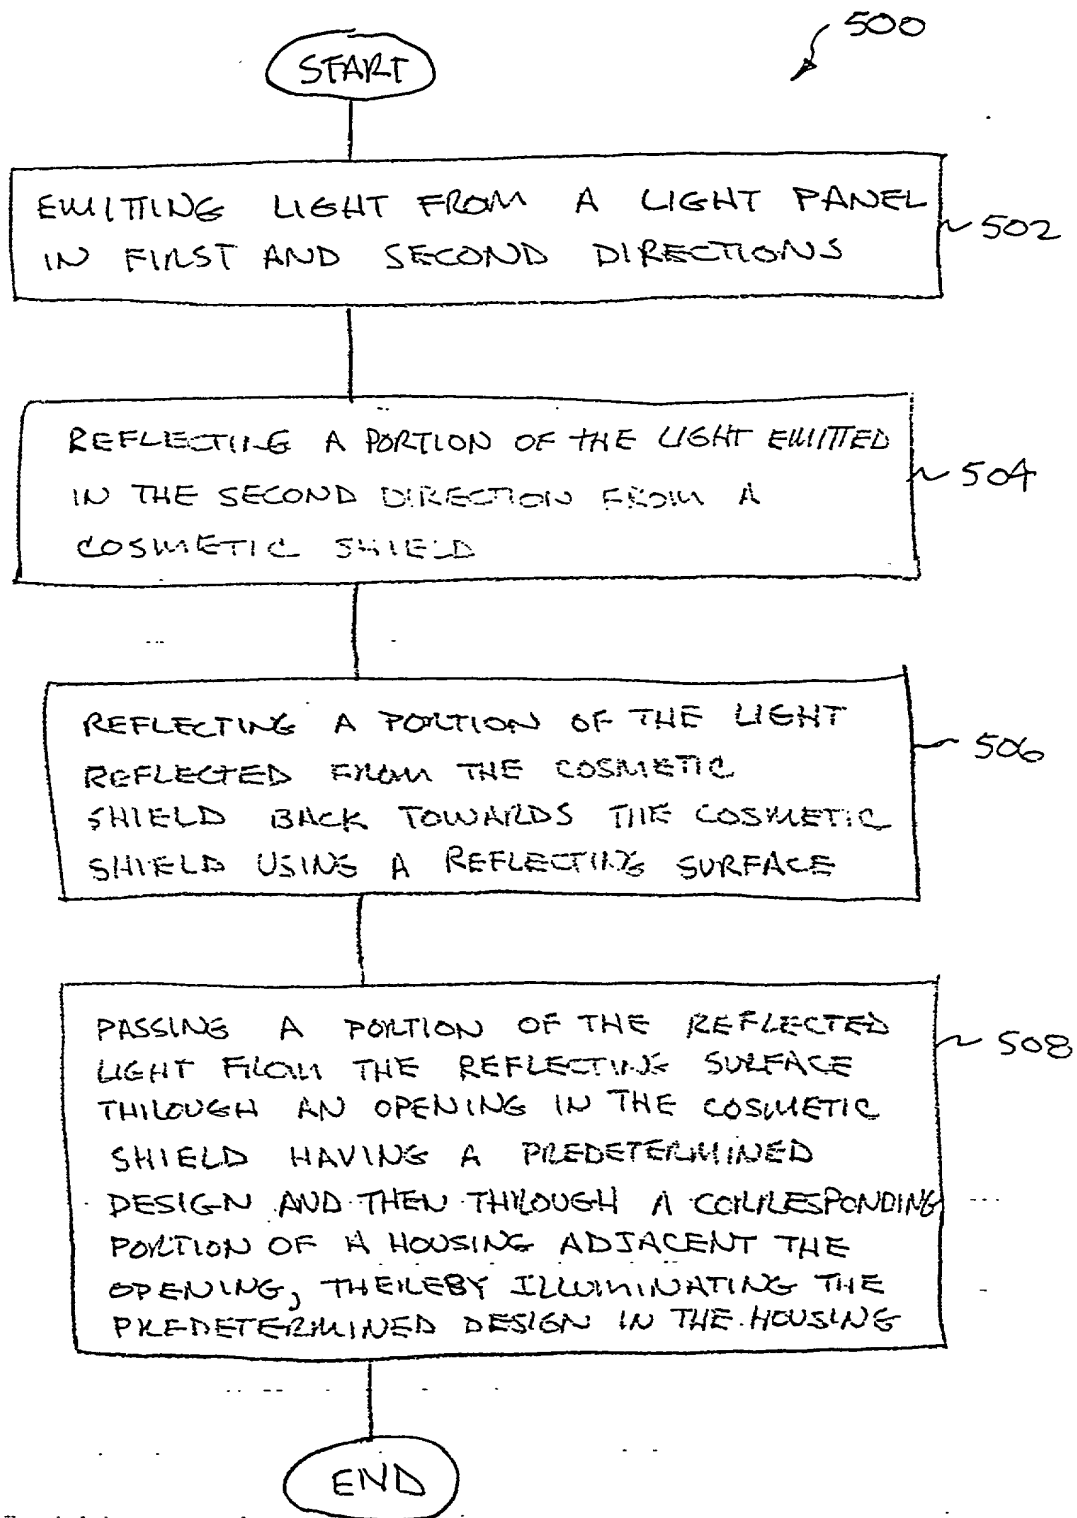 500
START
EMITTING LIGHT FROM A LIGHT PANEL
IN FIRST AND SECOND DIRECTIONS
502
REFLECTING A PORTION OF THE LIGHT EMITTED
IN THE SECOND DIRECTION FROM A
COSMETIC SHIELD
504
REFLECTING A PORTION OF THE LIGHT
REFLECTED FROM THE COSMETIC
SHIELD BACK TOWARDS THE COSMETIC
SHIELD USING A REFLECTING SURFACE
506
PASSING A PORTION OF THE REFLECTED
LIGHT FROM THE REFLECTING SURFACE
THROUGH AN OPENING IN THE COSMETIC
SHIELD HAVING A PREDETERMINED
DESIGN AND THEN THROUGH A CORRESPONDING
PORTION OF A HOUSING ADJACENT THE
OPENING, THEREBY ILLUMINATING THE
PREDETERMINED DESIGN IN THE HOUSING
508
END